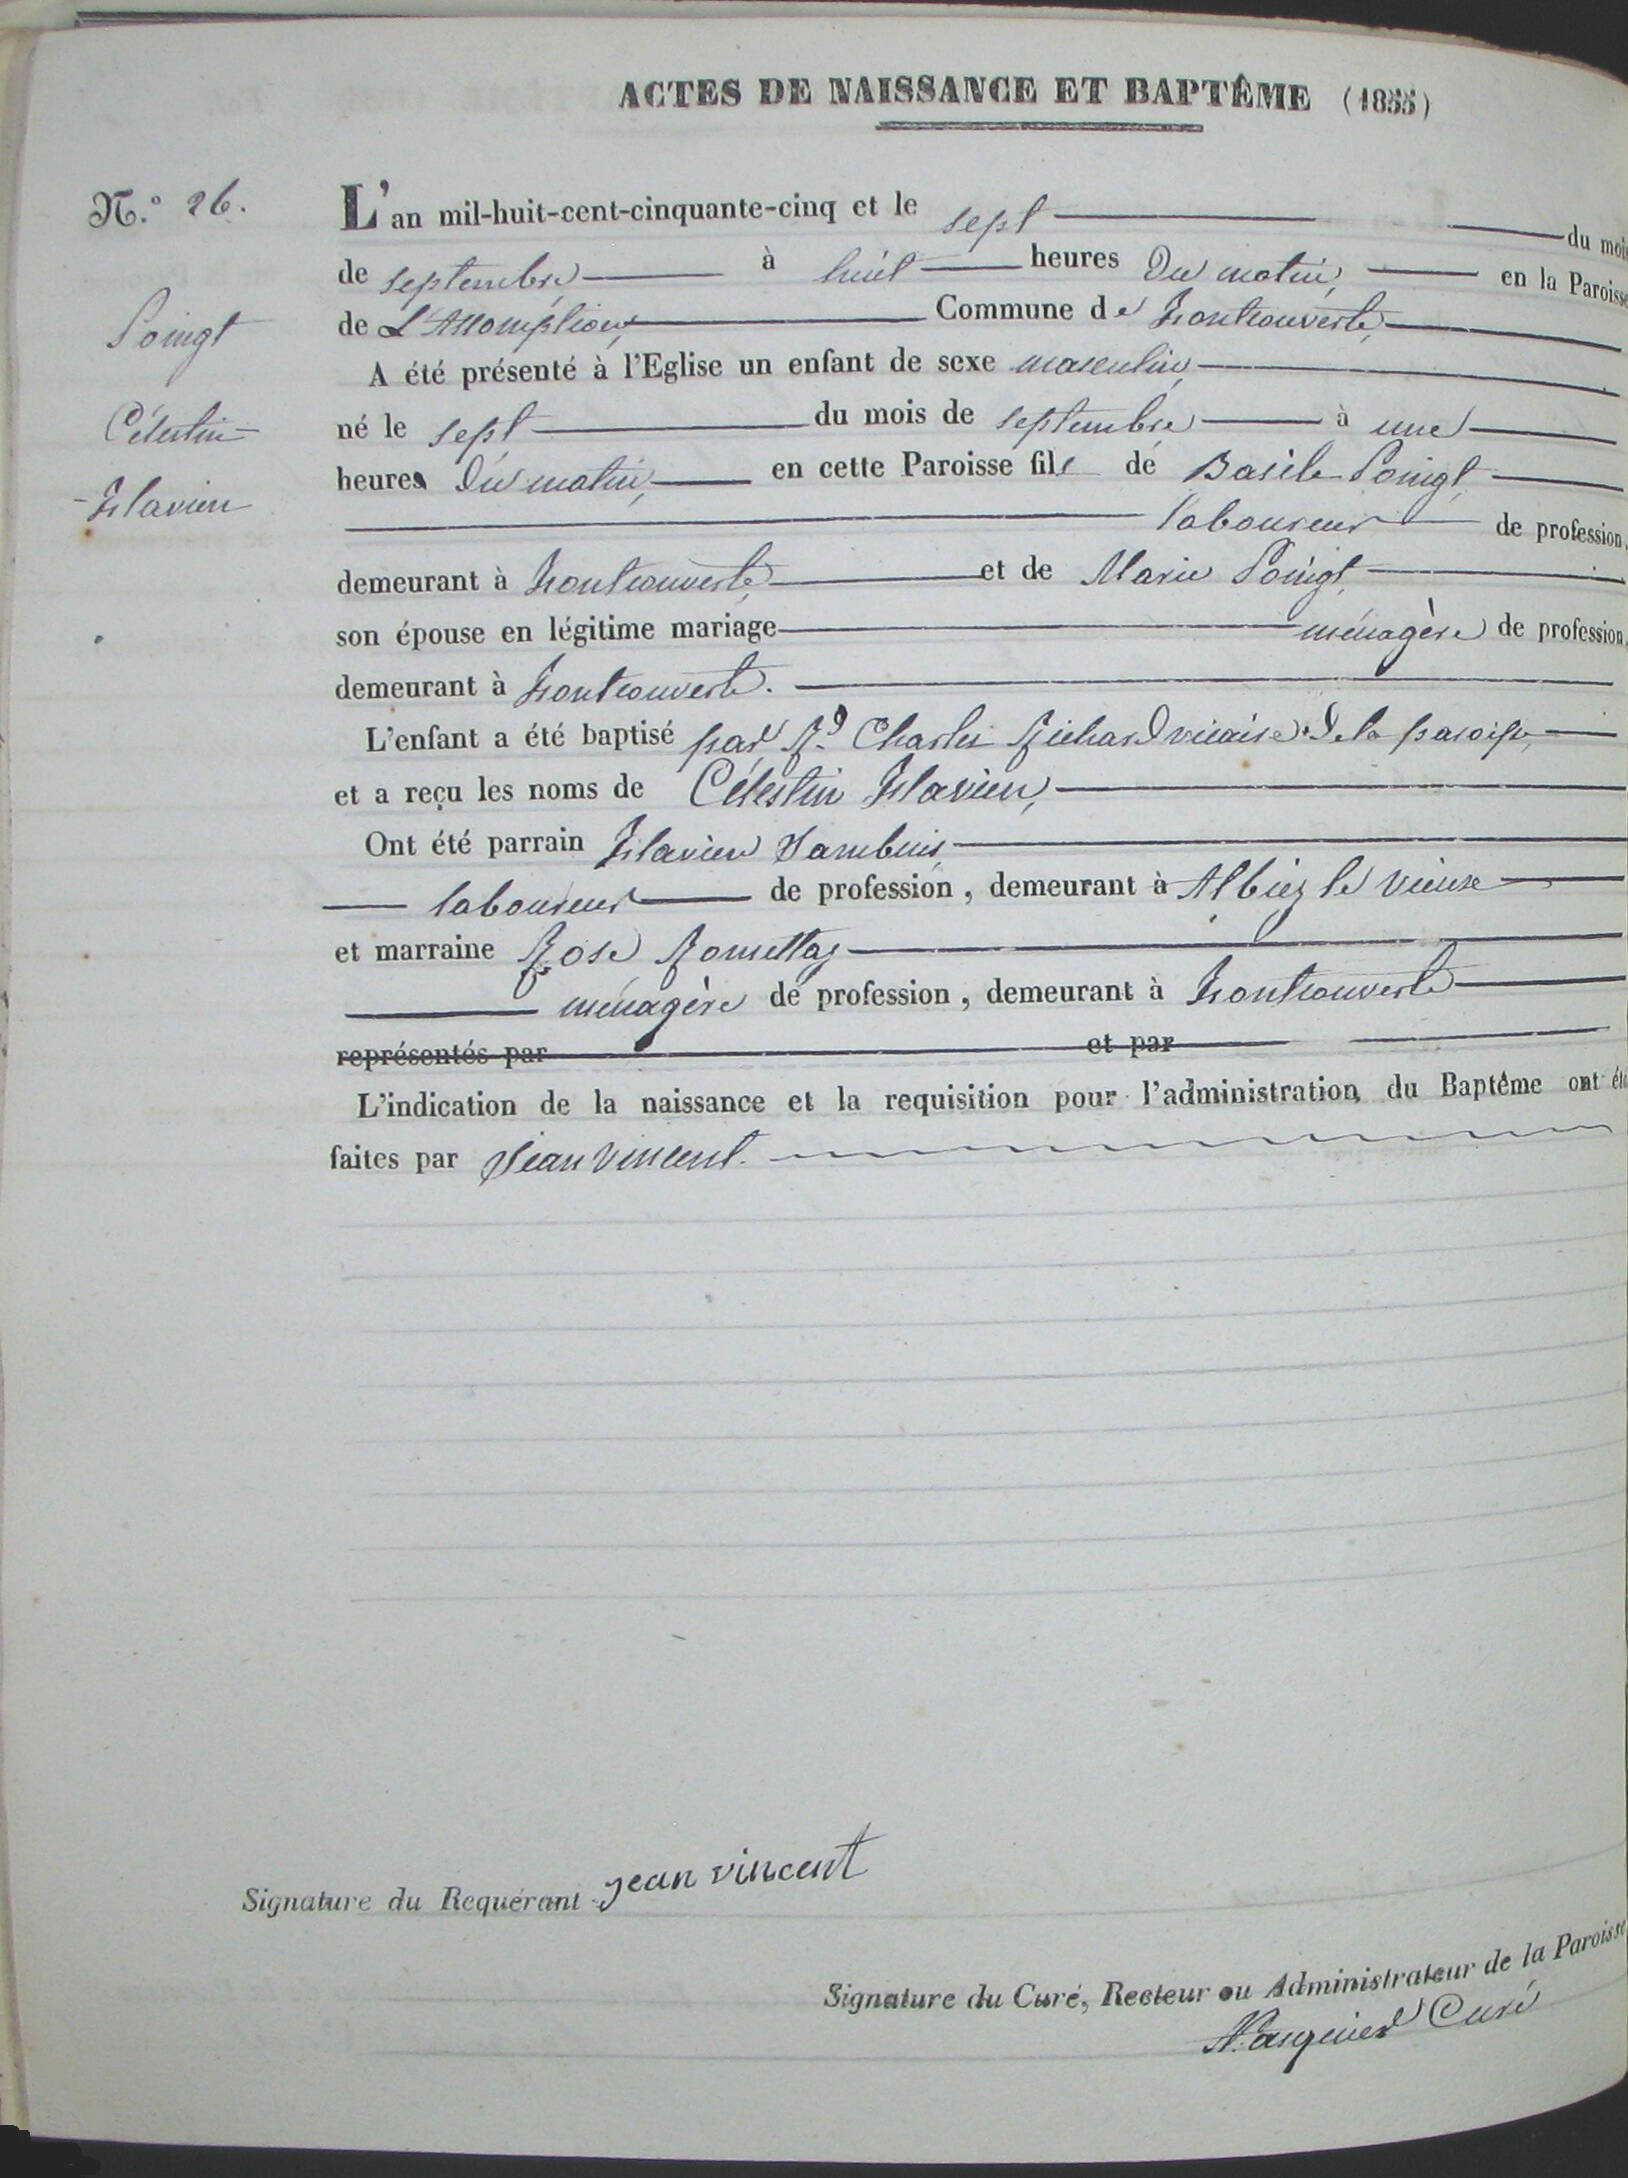 ACTES DE NAISSANCE ET BAPTÊME (1855)
N.° 26.
L'an mil-huit-cent-cinquante-cinq et le sept du mois
de septembre à huit heures Du matin, en la Paroisse
Poingt
de L'Assomption, Commune de Fontcouverte,
A été présenté à l'Eglise un enfant de sexe masculin,
Célestin
né le sept du mois de septembre à une
heures Du matin, en cette Paroisse fils de Basile Poingt,
Flavien
laboureur de profession,
demeurant à Fontcouverte, et de Marie Poingt,
son épouse en légitime mariage ménagère de profession,
demeurant à Fontcouverte.
L'enfant a été baptisé par Rd Charles Richard vicaire de la paroisse,
et a reçu les noms de Célestin Flavien,
Ont été parrain Flavien Sambuis,
laboureur de profession, demeurant à Albiez le vieux
et marraine Rose Romettaz
ménagère de profession, demeurant à Fontcouverte
représentés par et par
L'indication de la naissance et la requisition pour l'administration du Baptême ont été
faites par Jean Vincent.
Signature du Requérant jean vincent
Signature du Curé, Recteur ou Administrateur de la Paroisse
Curé